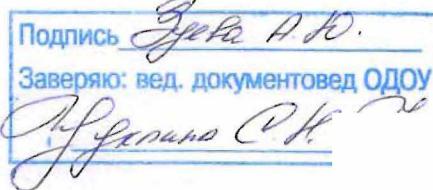 Подпись Зуева А.Ю.
Заверяю: вед. документовед ОДОУ
С.Н.